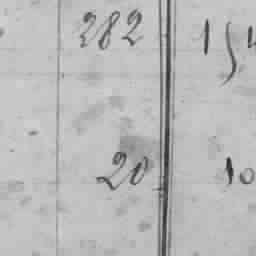 282 15
20 10